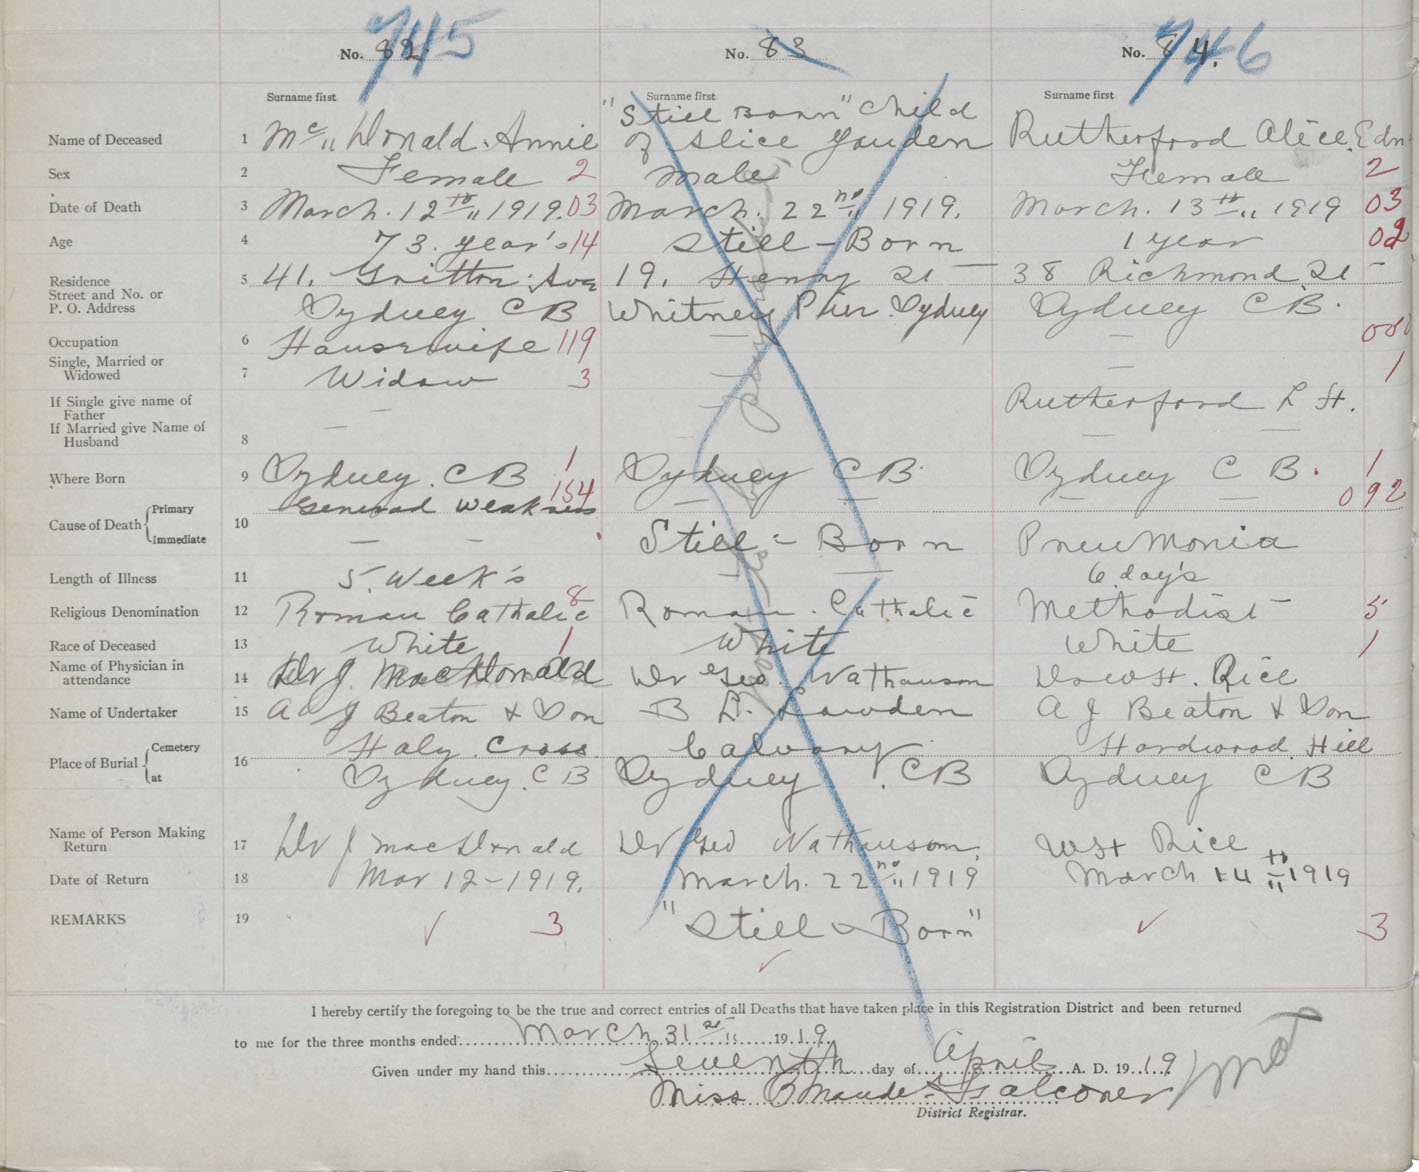 745 746
No. 82 No. 83 No. 84.
Surname first Surname first Surname first
"Still Born" Child
Name of Deceased 1 Mc" Donald. Annie of Alice Youden Rutherford Alice. Edn
Sex 2 Female 2 male Female 2
Date of Death 3 March. 12th" 1919. 03 March. 22nd" 1919. March. 13th" 1919 03
Age 4 73. year's 14 Still - Born 1 year 02
Residence
Street and No. or
P. O. Address
5 41. Ave 19. Henry St 38 Richmond St
Sydney C B Whitney Pier. Sydney Sydney C B.
Occupation 6 Housewife 119 —
Single, Married or
Widowed
7 Widow 3 — 1
If Single give name of
Father
Rutherford L H.
If Married give Name of
Husband
8
Where Born 9 Sydney. C B 1 Sydney C B. Sydney C B. 1
154 092
Cause of Death { Primary General weakness
10
Immediate — — Still - Born Pneumonia
Length of Illness 11 5. Week's — 6 day's
Religious Denomination 12 Roman Catholic 8 Roman. Catholic Methodist 5
Race of Deceased 13 White 1 White White 1
Name of Physician in
attendance
14 Dr J. MacDonald Dr Geo. Nathanson Rice
Name of Undertaker 15 A J Beaton & Son B L. Lowden A J Beaton & Son
Place of Burial { Cemetery Holy Cross Calvary Hardwood Hill
16
at Sydney. C B Sydney. CB Sydney C B
Name of Person Making
Return
17 Dr J macDonald Dr Geo Nathanson. W H Rice
Date of Return 18 Mar 12 - 1919. March. 22nd" 1919 March 14th" 1919
REMARKS 19 ✓ 3 "Still - Born" ✓ 3
✓
I hereby certify the foregoing to be the true and correct entries of all Deaths that have taken place in this Registration District and been returned
to me for the three months ended March 31st" 1919.
Given under my hand this Seventh day of April A. D. 1919
Miss Maude Falconer
District Registrar.